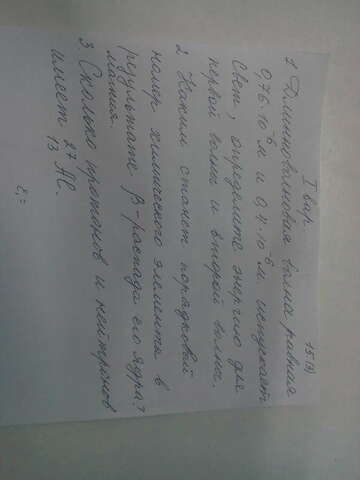 15(9)
I вар
1 Длинноволновая волна равная
0,76·10⁻⁶м и 0,4·10⁻⁶м. испускает
свет, определите энергию для
первой волны и второй волны.
2 Каким станет порядковой
номер химического элемента в
результате β-распада его ядра?
магния.
3 Сколько протонов и нейтронов
имеет ²⁷₁₃Al.
ε₁=